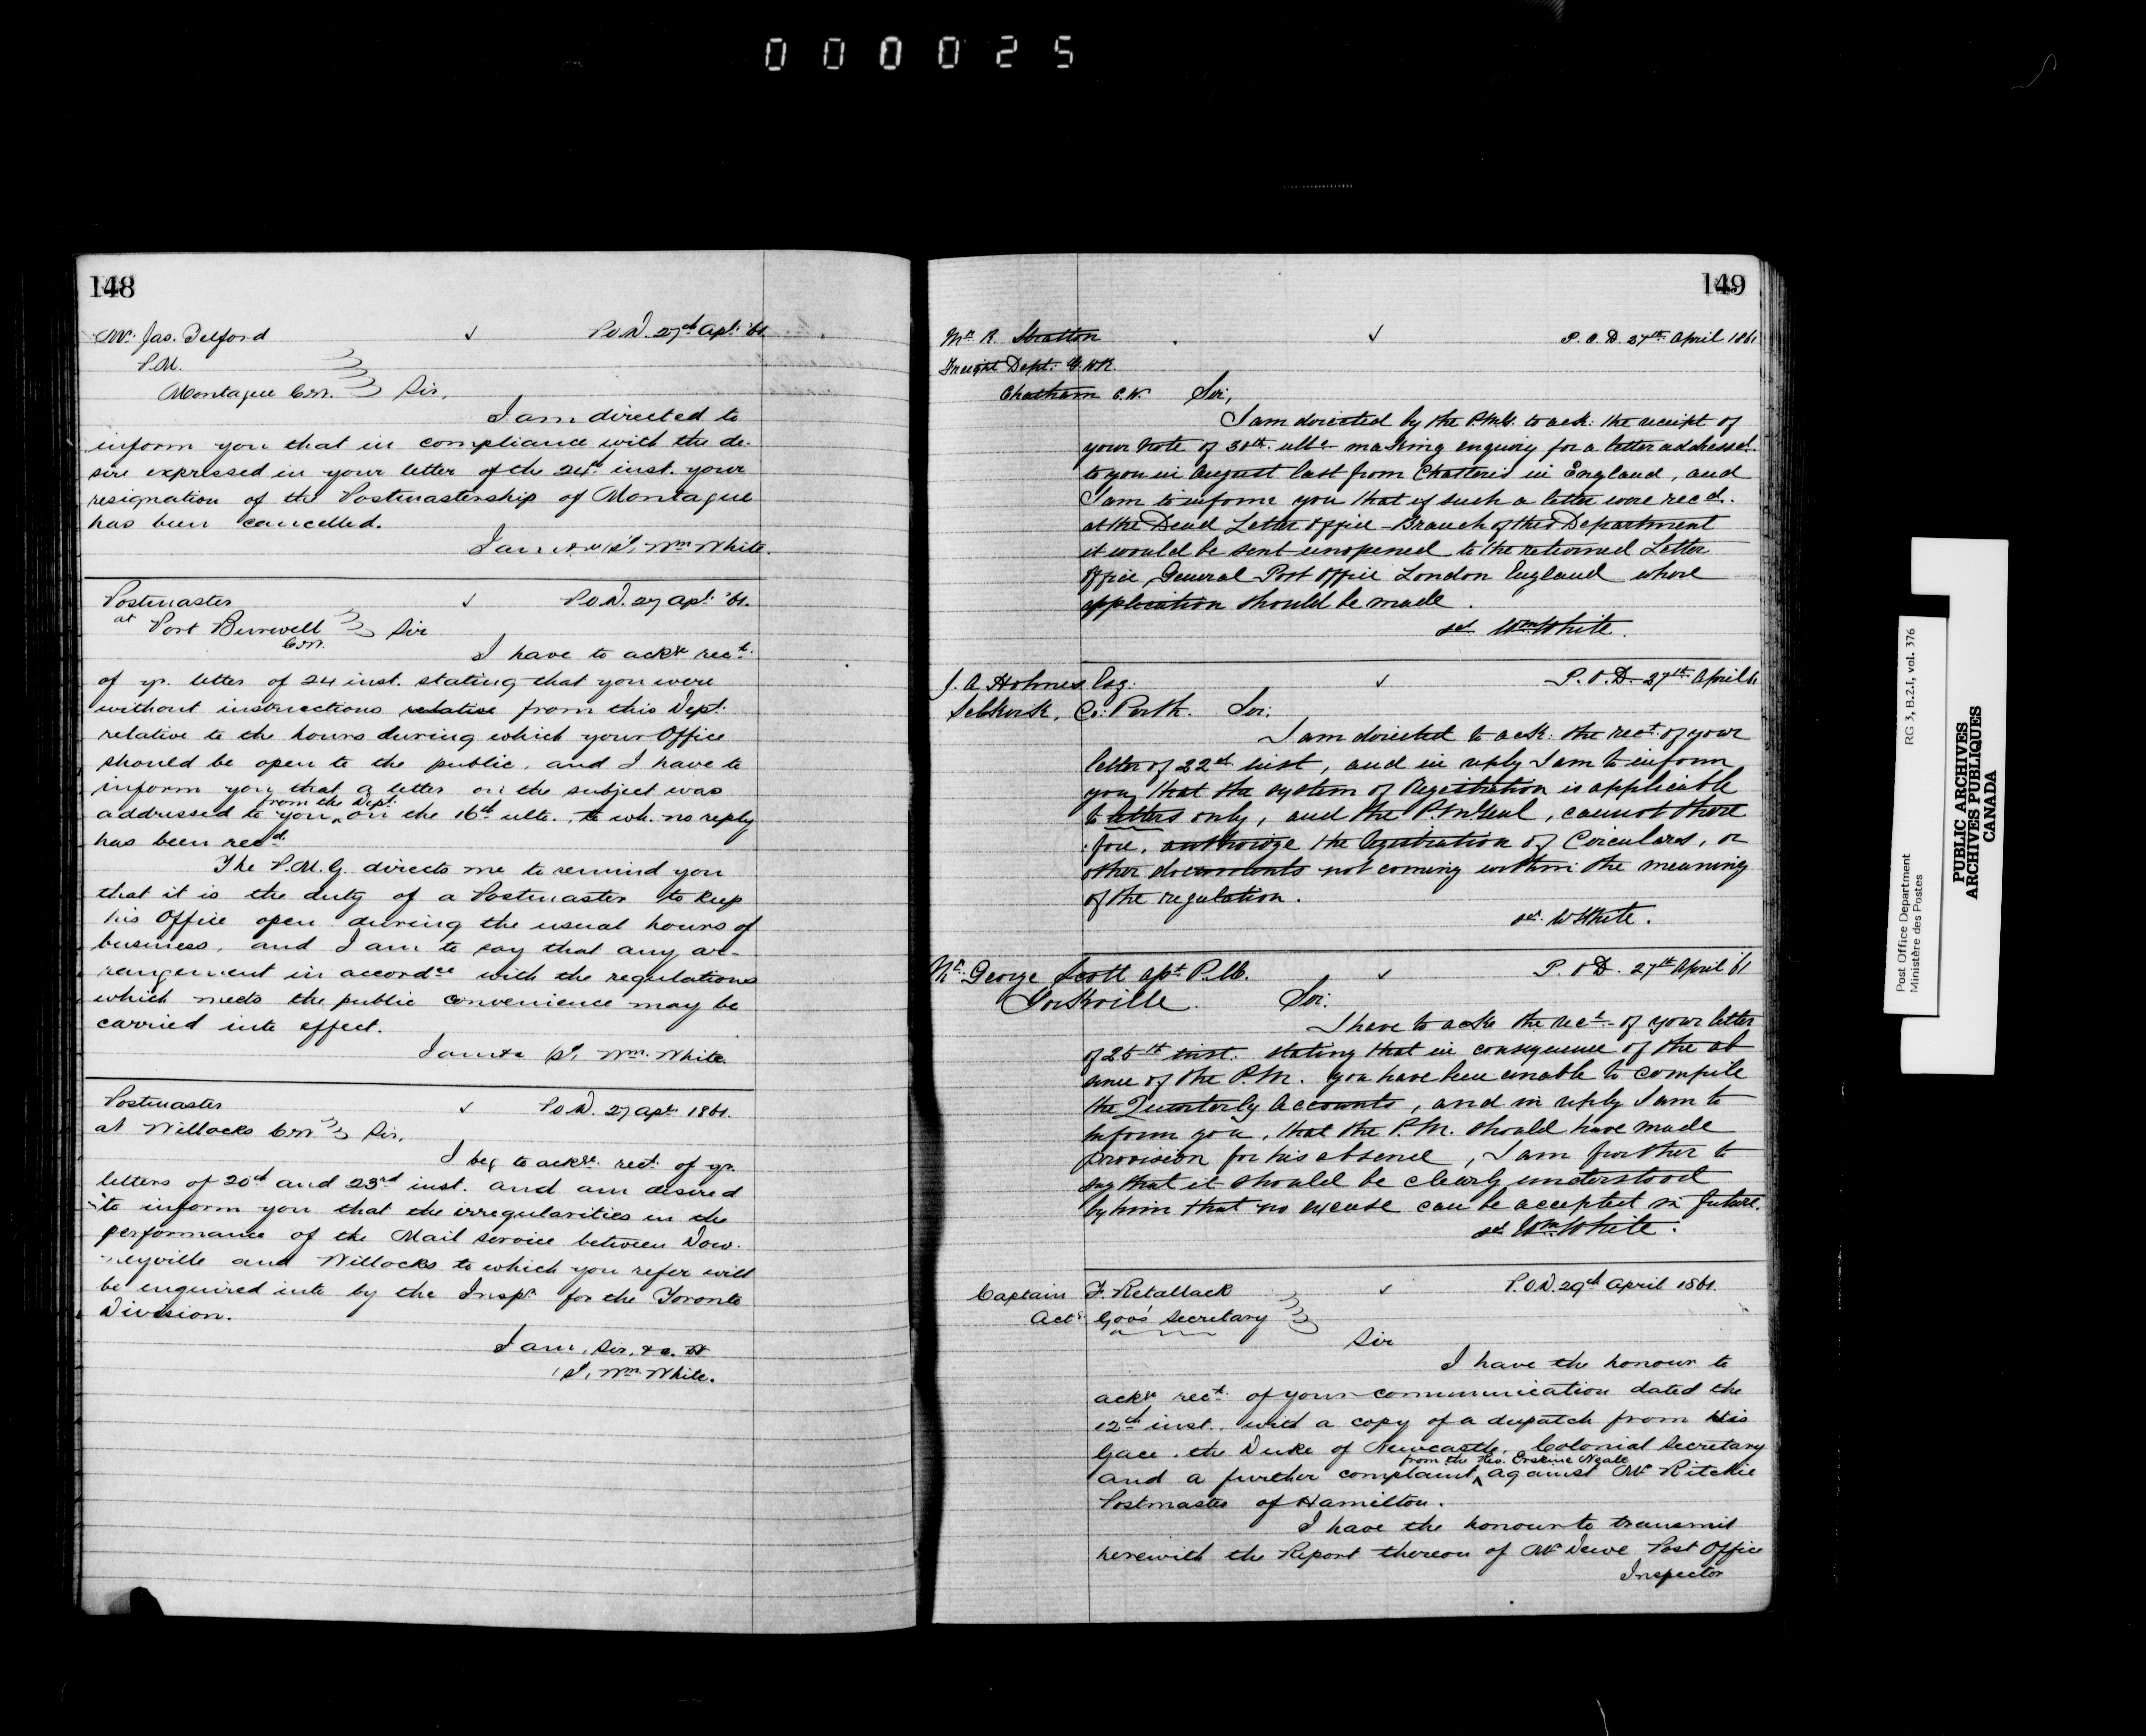 000025
148
Mr. Jas. Telford ✓ P.O.D. 27th Apl. '61.
P.M.
Montague C.W. Sir,
I am directed to
inform you that in compliance with the de-
sire expressed in your letter of the 24th inst. your
resignation of the Postmastership of Montague
has been cancelled.
I am &c (sd) Wm. White.
Postmaster ✓ P.O.D. 27 Apl. '61.
at Port Burwell Sir
C.W.
I have to ackge. rect.
of yr. letter of 24 inst. stating that you were
without instructions relative from this Dept.
relative to the hours during which your Office
should be open to the public, and I have to
inform you that a letter on the subject was
from the Dept.
addressed to you on the 16th ulto., to wh. no reply
has been recd.
The P.M.G. directs me to remind you
that it is the duty of a Postmaster to keep
his Office open during the usual hours of
business, and I am to say that any ar-
rangement in accordce with the regulations
which meets the public convenience may be
carried into effect.
I am &c (sd) Wm. White.
Postmaster ✓ P.O.D. 27 Apl. 1861.
at Willocks C.W. Sir,
I beg to ackge. rect. of yr.
letters of 20th and 23rd inst. and am desired
to inform you that the irregularities in the
performance of the Mail service between Dow-
neyville and Willocks to which you refer will
be enquired into by the Inspr. for the Toronto
Division.
I am, Sir, &c.
(sd) Wm. White.
149
Mr. R. Stratton ✓ P.O.D. 27th April 1861
Freight Dept. G.W.R.
Chatham C.W. Sir,
I am directed by the P.M.G. to ack: the receipt of
your note of 30th ulto. making enquiry for a letter addressed
to you in August last from Chatteris in England, and
I am to inform you that if such a letter were recd.
at the Dead Letter Office Branch of this Department
it would be sent unopened to the returned Letter
Office, General Post Office London England where
application should be made.
sd Wm White.
J. A. Holmes Esq. ✓ P.O.D. 27th April 61
Selkirk, Co: Perth. Sir:
I am directed to ack: the rect. of your
letter of 22nd inst, and in reply I am to inform
you, that the system of Registration is applicable
to letters only, and the P.M. Genl, cannot there
fore, authorize the Registration of Circulars, or
other documents not coming within the meaning
of the regulation.
sd. W White.
Mr. George Scott apt P.M. ✓ P.O.D. 27th April 61
Yorkville. Sir:
I have to ackn the rect. of your letter
of 25th inst. stating that in consequence of the ab
sence of the P.M. you have been unable to compile
the Quarterly Accounts, and in reply I am to
inform you, that the P.M. should have made
provision for his absence, I am further to
say that it should be clearly understood
by him that no excuse can be accepted in future.
sd Wm. White.
Captain F. Retallack ✓ P.O.D. 29th April 1861.
Actg. Govr's Secretary
Sir
I have the honour to
ackge rect. of your communication dated the
12th inst., with a copy of a despatch from His
Grace, the Duke of Newcastle, Colonial Secretary
from the Rev. Erskine Neale
and a further complaint against Mr Ritchie
Postmaster of Hamilton.
I have the honour to transmit
herewith the Report thereon of Mr Dewe Post Office
Inspector
Post Office Department
Ministère des Postes
RG 3, B.2.I, vol. 376
PUBLIC ARCHIVES
ARCHIVES PUBLIQUES
CANADA